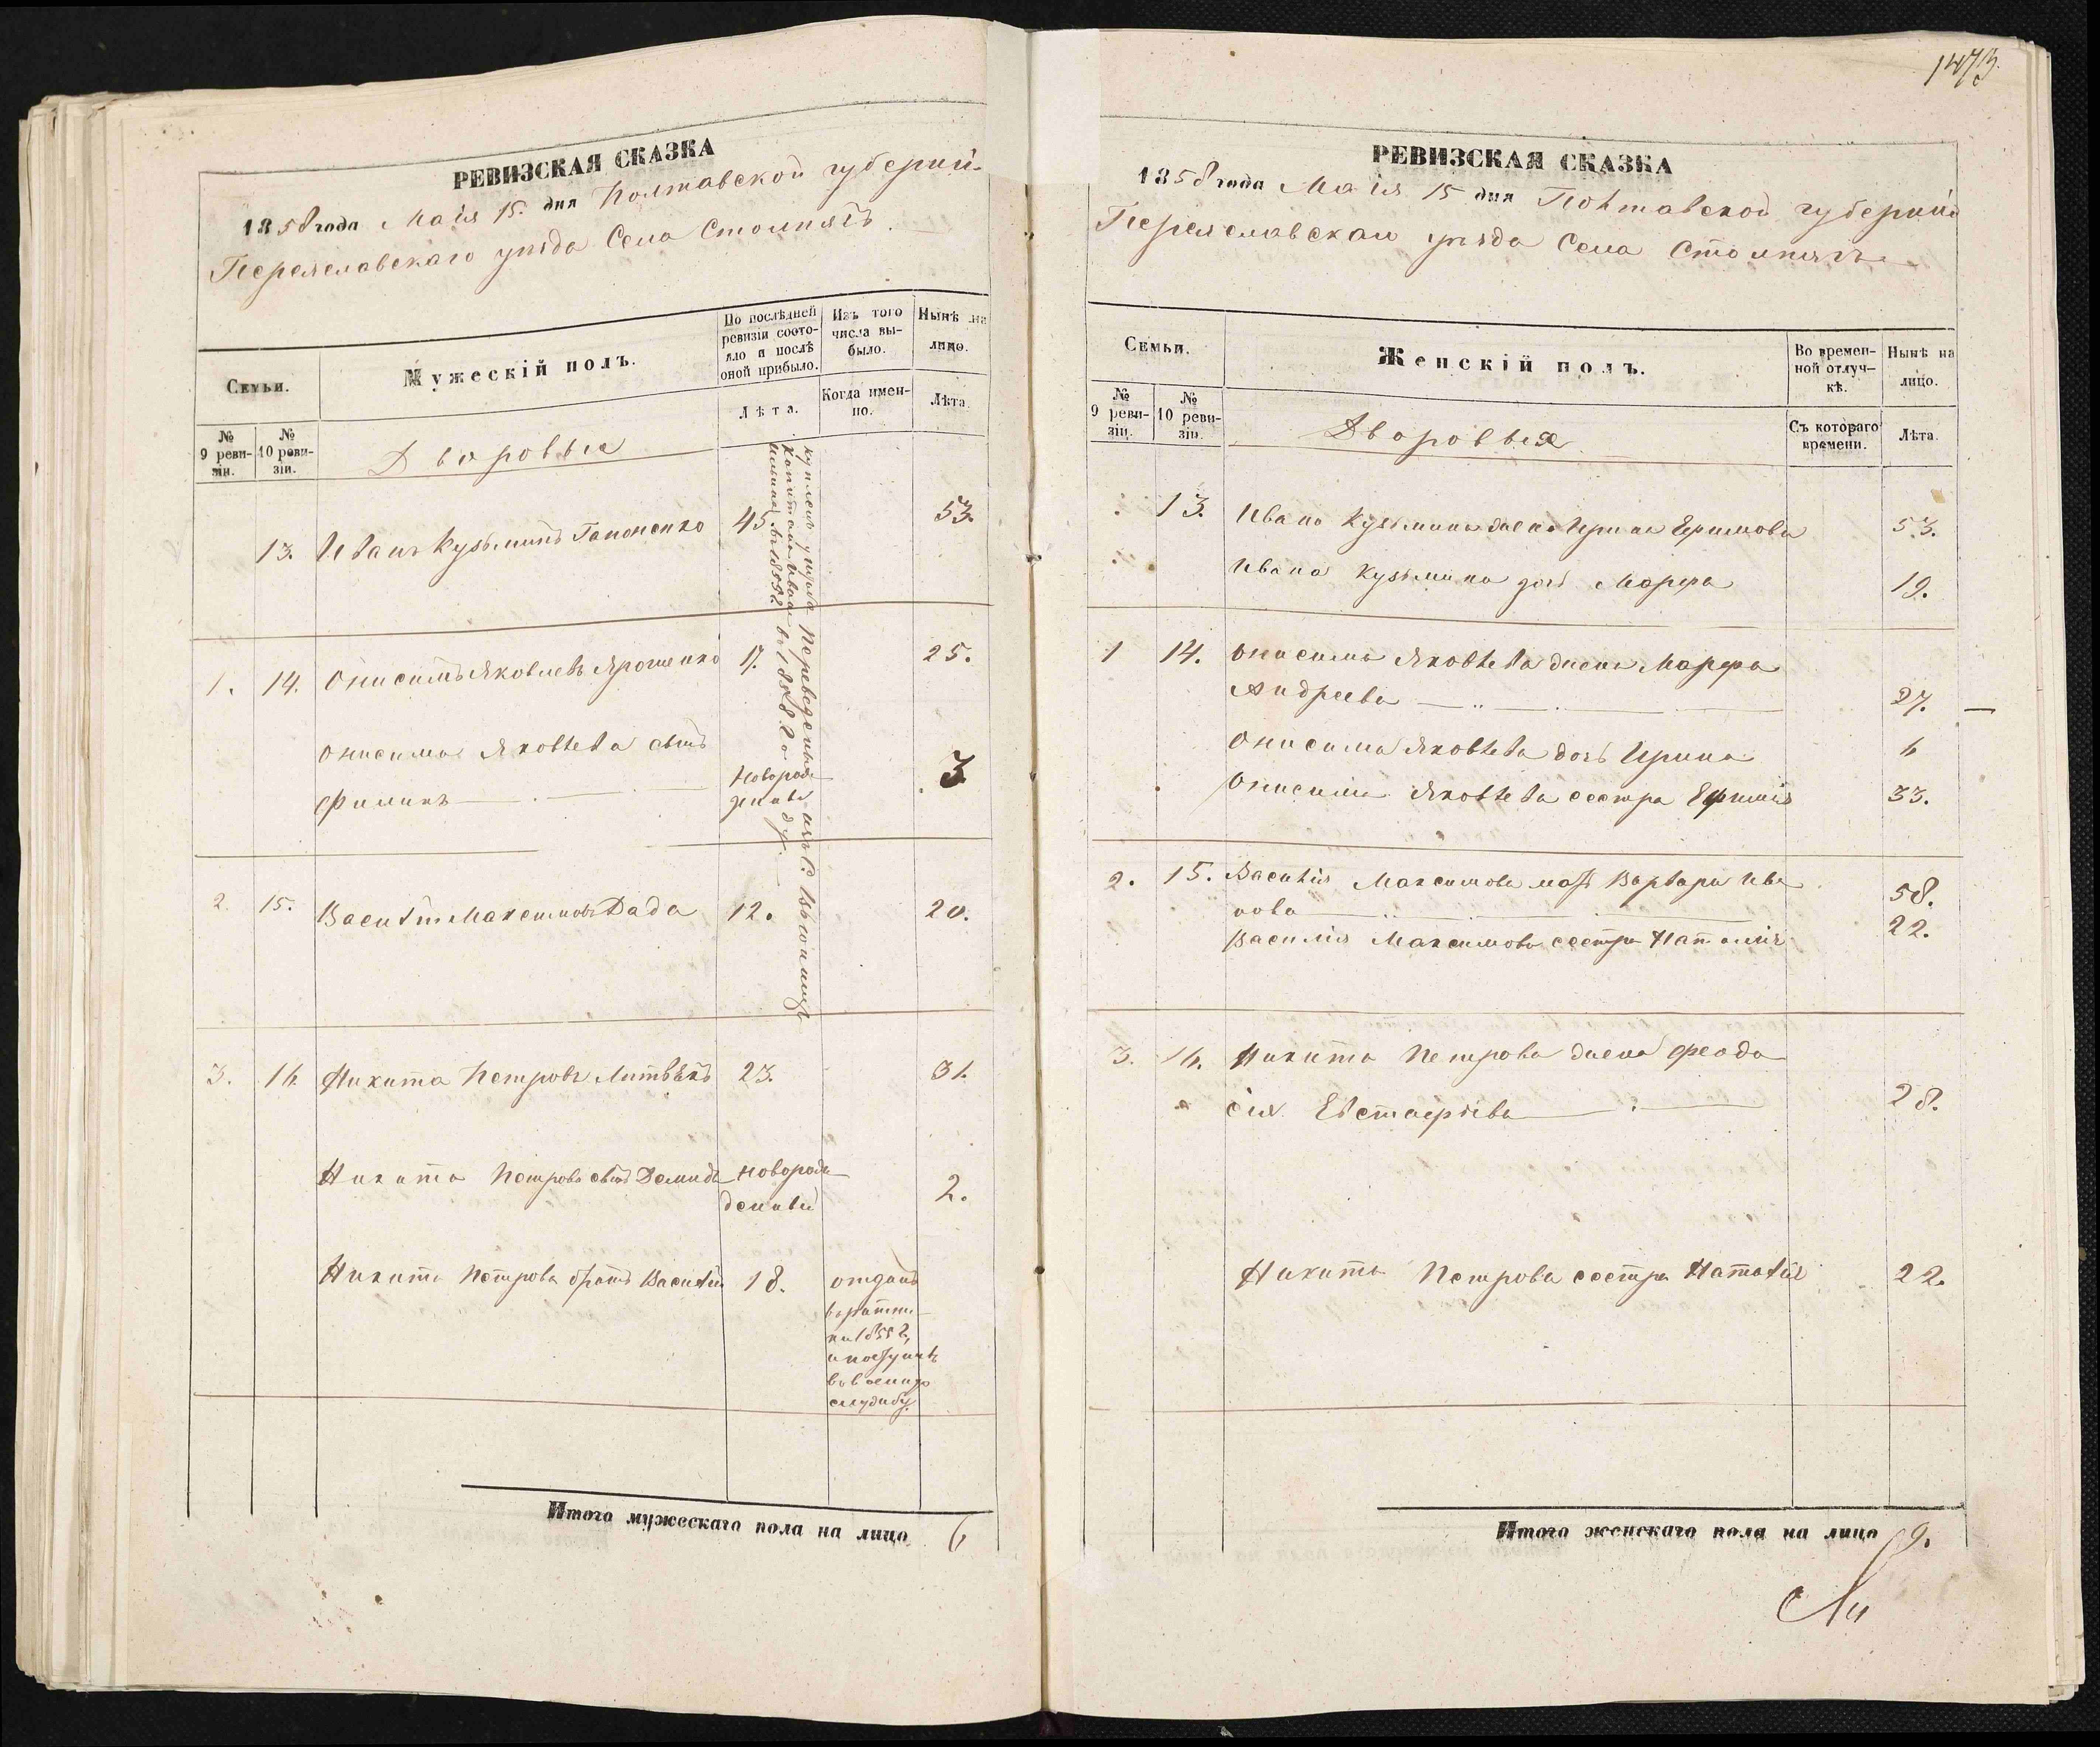 РЕВИЗСКАЯ СКАЗКА
1858 года Маія 15. дня Полтавской губерніи
Переяславскаго уѣзда Села Столпягъ.
Семьи.
Мужескій полъ.
По послѣдней ревизіи состояло и послѣ оной прибыло.
Изъ того числа выбыло.
Нынѣ на лицо.
№ 9 ревизіи.
№ 10 ревизіи.
Дворовые
Лѣта.
Когда именно.
Лѣта.
13. Иванъ Кузьминъ Гапоненко 45. 53.
1. 14. Онисимъ Яковлевъ Ярошенко 17. 25.
Онисима Яковлева сынъ
Филипъ новорож
денный 3
2. 15. Василій Максимовъ Дада 12. 20.
3. 16 Никита Петровъ Литвинъ 23. 31.
Никиты Петрова сынъ Демидъ новорож
денный 2.
Никиты Петрова братъ Василій 18. отданъ
въ ратни
ки 1855 г.
и поступилъ
въ военную
службу.
купленъ у
въ 1852 г.
Переведены изъ С.
въ 1858 году
Итого мужескаго пола на лицо 6
1473.
РЕВИЗСКАЯ СКАЗКА
1858 года Маія 15 дня Полтавской губерніи
Переяславскаго уѣзда Села Столпягъ
Семьи.
Женскій полъ.
Во временной отлучкѣ.
Нынѣ на лицо.
№ 9 ревизіи.
№ 10 ревизіи.
Дворовыя
Съ котораго времени.
Лѣта.
13. Ивана Кузьмина жена Ирина Ефимова 53.
Ивана Кузьмина дочь Марфа 19.
1 14. Онисима Яковлева жена Марфа
Андреева 27.
Онисима Яковлева дочь Ирина 6
Онисима Яковлева сестра Ефимія 33.
2. 15. Василія Максимова мать Варвара Ива
нова 58.
Василія Максимова сестра Наталія 22.
3. 16. Никиты Петрова жена Феодо
сія Евстафіева 28.
Никиты Петрова сестра Наталія 22.
Итого женскаго пола на лицо 9.